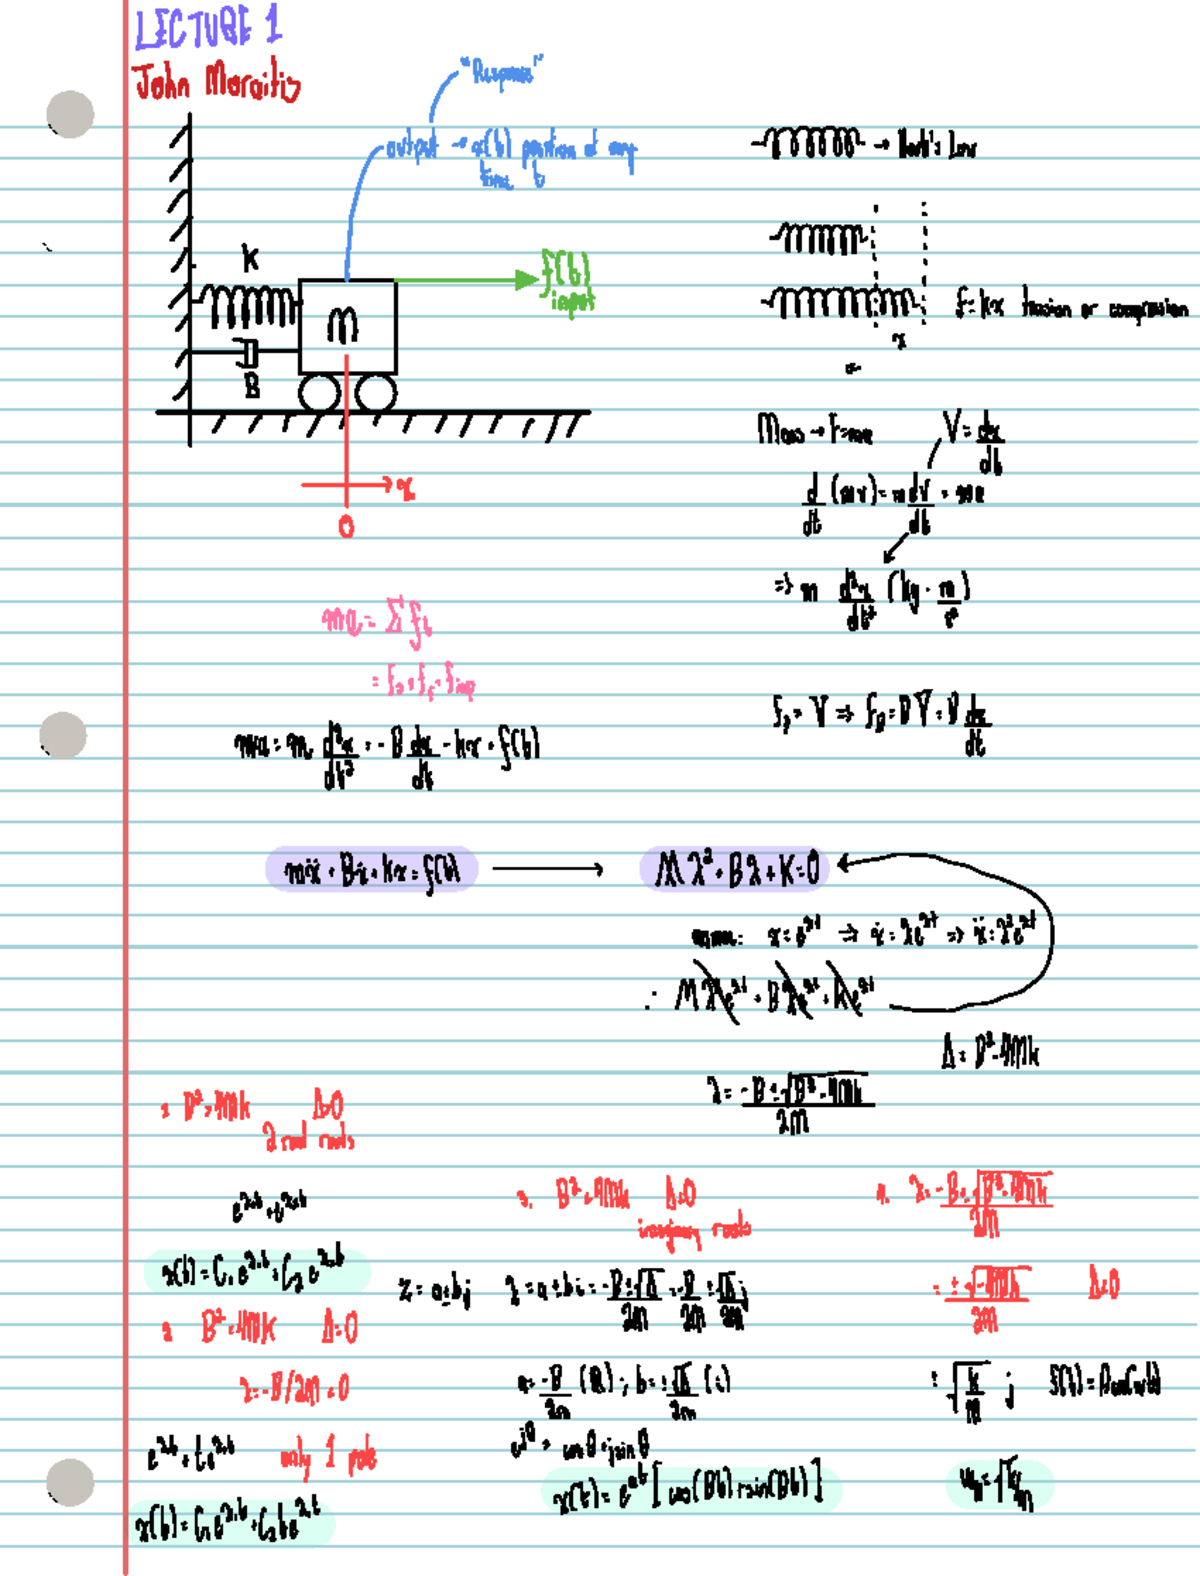 LECTURE 1
John Moraitis
"Response"
output → x(t) position at any
time t
→ Hook's Law
K
m
B
f(t)
input
x
0
f=kx tension or compression
x
Mass → F=ma
V = dx/dt
d/dt (mv) = m dV/dt = ma
=> m d²x/dt² (kg · m/s²)
ma = Σ fi
ma = m d²x/dt² = -B dx/dt - kx + f(t)
=> fB = B V = B dx/dt
mẍ + Bẋ + kx = f(t) → Mλ² + Bλ + K = 0
x = e^λt => ẋ = λe^λt => ẍ = λ²e^λt
∴ Mλ²e^λt + Bλe^λt + Ke^λt
Δ = B² - 4Mk
λ = -B ± √B² - 4Mk / 2M
1. B² > 4Mk Δ>0
2 real roots
e^λ₁t + e^λ₂t
x(t) = C₁e^λ₁t + C₂e^λ₂t
2. B² = 4Mk Δ=0
λ = -B/2m = 0
e^λt + te^λt only 1 pole
x(t) = C₁e^λt + C₂te^λt
3. B² < 4Mk Δ<0
imaginary roots
z = a ± bj λ = a ± bi = -B ± √Δ / 2m = -B/2m ± √Δ/2m j
a = -B/2m (R) ; b = ±√Δ/2m (i)
e^jθ = cosθ + jsinθ
x(t) = e^at [cos(Bt) + sin(Bt)]
4. λ = -B ± √B² - 4Mk / 2M
= ± √-4Mk / 2M Δ<0
= √k/m j
ωn = √k/m